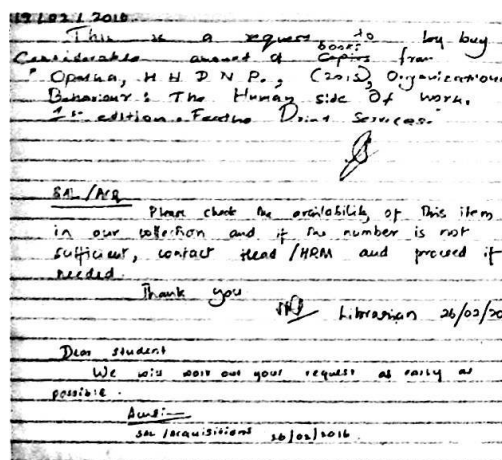 19/02/2016
This is a request to buy
Considerable amount of books from
"Opatha, H H D N P., (2015), Organizationa
Behaviour: The Human side Of work.
1st edition. Featho Print Services."
SAL/ACQ
Please check the availability of this item
in our collection and if the number is not
sufficient, contact Head/HRM and proceed if
needed.
Thank you
Librarian 26/02/20
Dear student
We will work out your request as early as
possible.
SAL/Acquisitions 26/02/2016